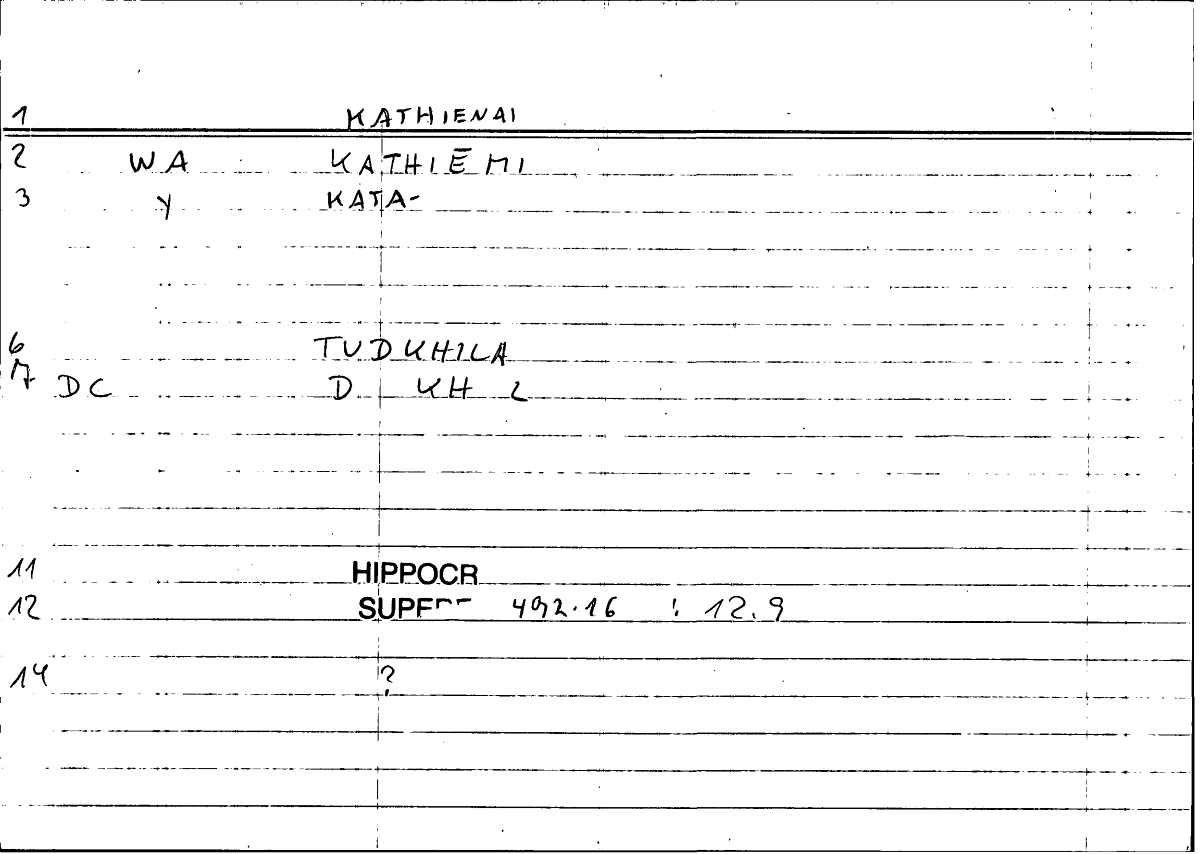 1 KATHIENAI
2 WA KATHIĒMI
3 Y KATA-
6 TUDKHILA
17 DC D KH L
11 HIPPOCR
12 492.16 : 12.9
14 ?